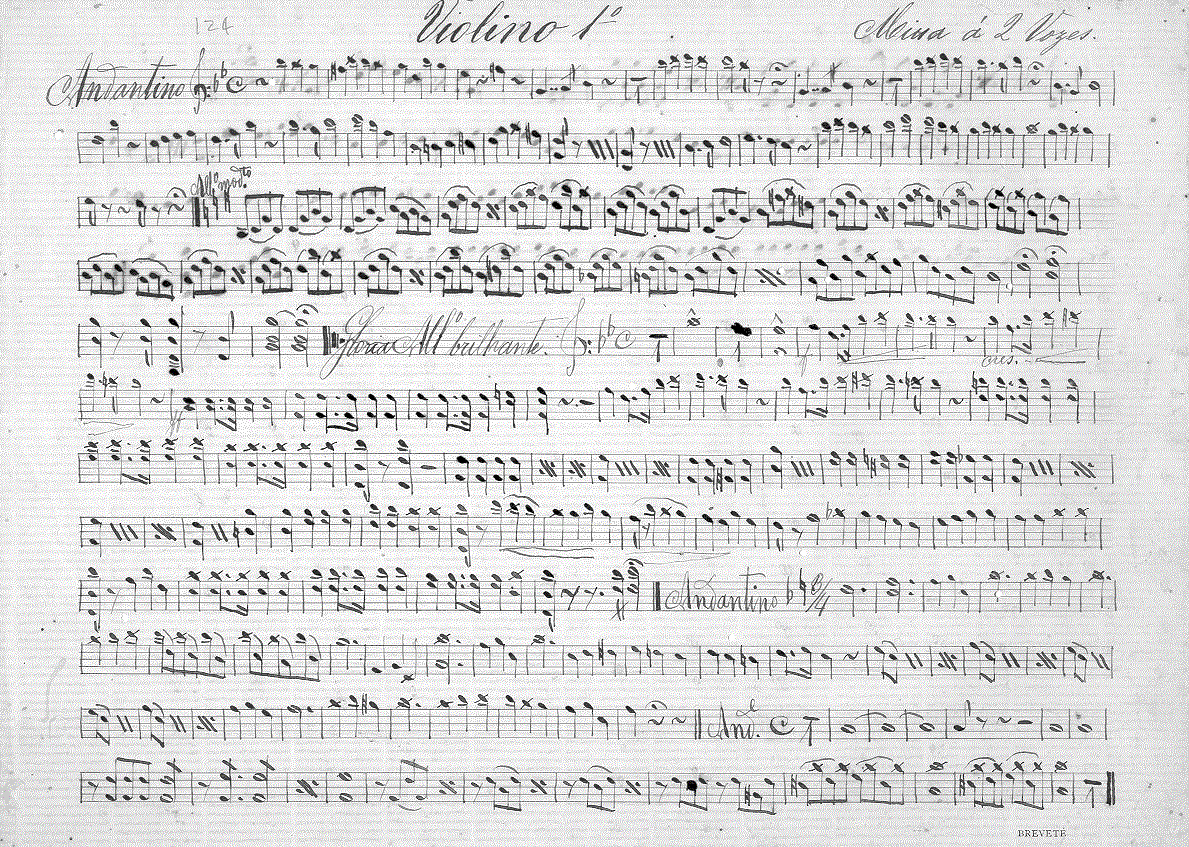 124
Violino 1º
Missa á 2 Vozes.
Andantino
All.º mod.to
Gloria All.º brilhante.
cres.
ff
Andantino 6/4
And.e
BREVETÉ